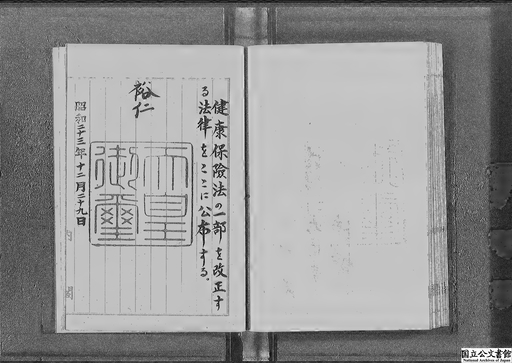 健康保險法の一部を改正す
る法律をここに公布する。
裕仁
天皇
御璽
昭和二十三年十二月二十九日
国立公文書館
National Archives of Japan